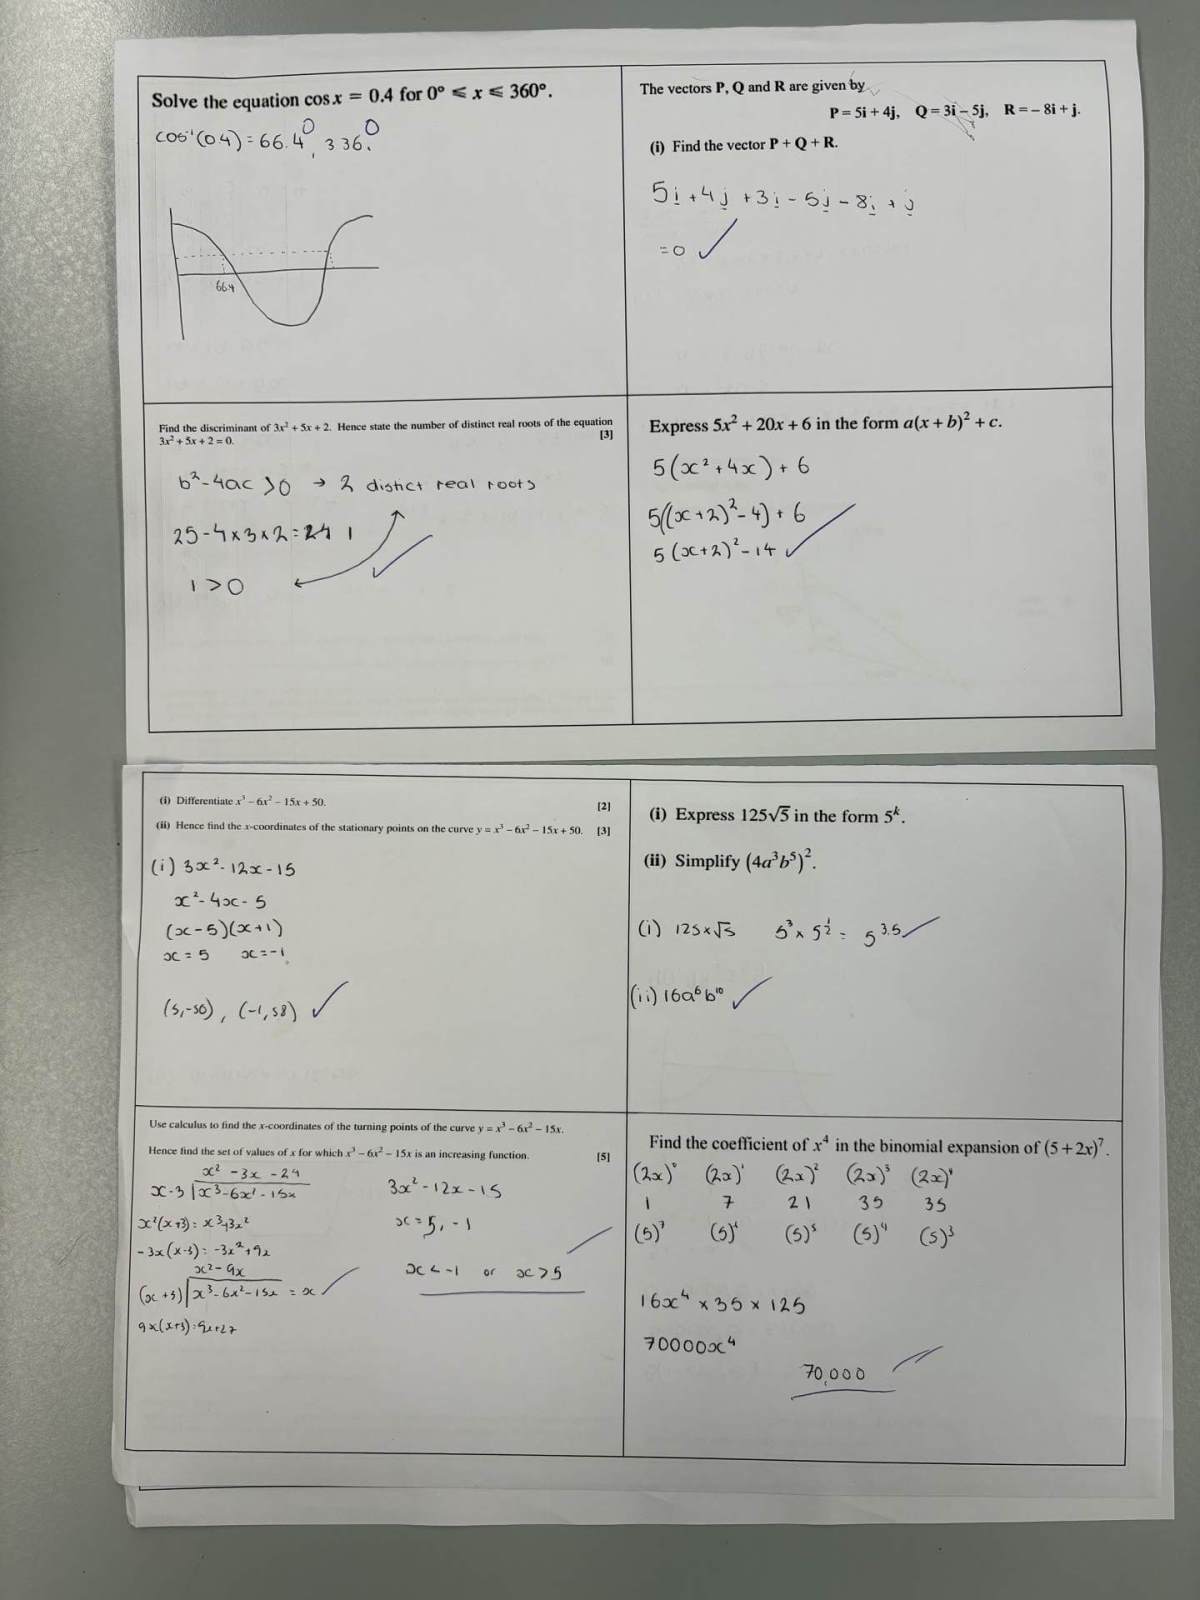 Solve the equation cos x = 0.4 for 0° ⩽ x ⩽ 360°.
cos⁻¹(0.4) = 66.4°, 336.°
66.4
The vectors P, Q and R are given by
P = 5i + 4j, Q = 3i – 5j, R = – 8i + j.
(i) Find the vector P + Q + R.
5i + 4j + 3i - 5j - 8i + j
= 0
Find the discriminant of 3x² + 5x + 2. Hence state the number of distinct real roots of the equation
3x² + 5x + 2 = 0. [3]
b² - 4ac > 0 → 2 distict real roots
25 - 4 x 3 x 2 = 1
1 > 0
Express 5x² + 20x + 6 in the form a(x + b)² + c.
5(x² + 4x) + 6
5((x+2)² - 4) + 6
5(x+2)² - 14
(i) Differentiate x³ – 6x² – 15x + 50. [2]
(ii) Hence find the x-coordinates of the stationary points on the curve y = x³ – 6x² – 15x + 50. [3]
(i) 3x² - 12x - 15
x² - 4x - 5
(x - 5)(x + 1)
x = 5 x = -1
(5, -50), (-1, 58)
(i) Express 125√5 in the form 5ᵏ.
(ii) Simplify (4a³b⁵)².
(i) 125 x √5 5³ x 5^½ = 5^3.5
(ii) 16a⁶b¹⁰
Use calculus to find the x-coordinates of the turning points of the curve y = x³ – 6x² – 15x.
Hence find the set of values of x for which x³ – 6x² – 15x is an increasing function. [5]
x² - 3x - 24
x - 3 | x³ - 6x² - 15x
x²(x+3) = x³+3x²
- 3x(x-3) = -3x² + 9x
x² - 9x
(x + 3) | x³ - 6x² - 15x = x
9x(x+3) = 9x+27
3x² - 12x - 15
x = 5, -1
x < -1 or x > 5
Find the coefficient of x⁴ in the binomial expansion of (5 + 2x)⁷.
(2x)⁰ (2x)¹ (2x)² (2x)³ (2x)⁴
1 7 21 35 35
(5)⁷ (5)⁶ (5)⁵ (5)⁴ (5)³
16x⁴ x 35 x 125
70000x⁴
70,000